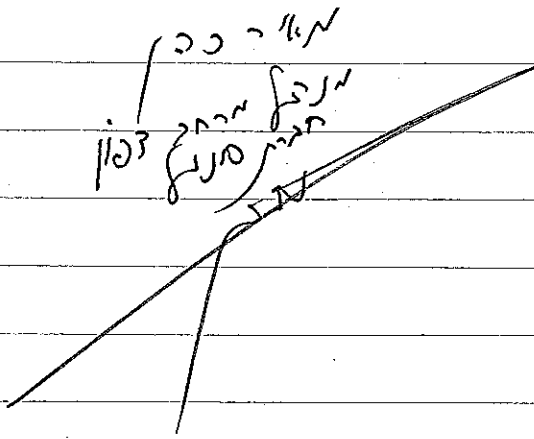 מאיר כה
מנהל מרחב צפון
חברת סונול